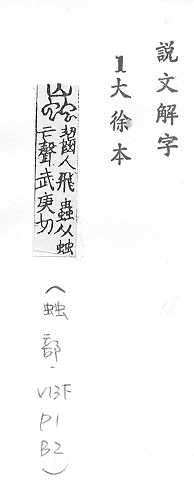 説文解字
1大徐本
齧人飛蟲从䖵
亡聲武庚切
(䖵部.V13F P1 B2)